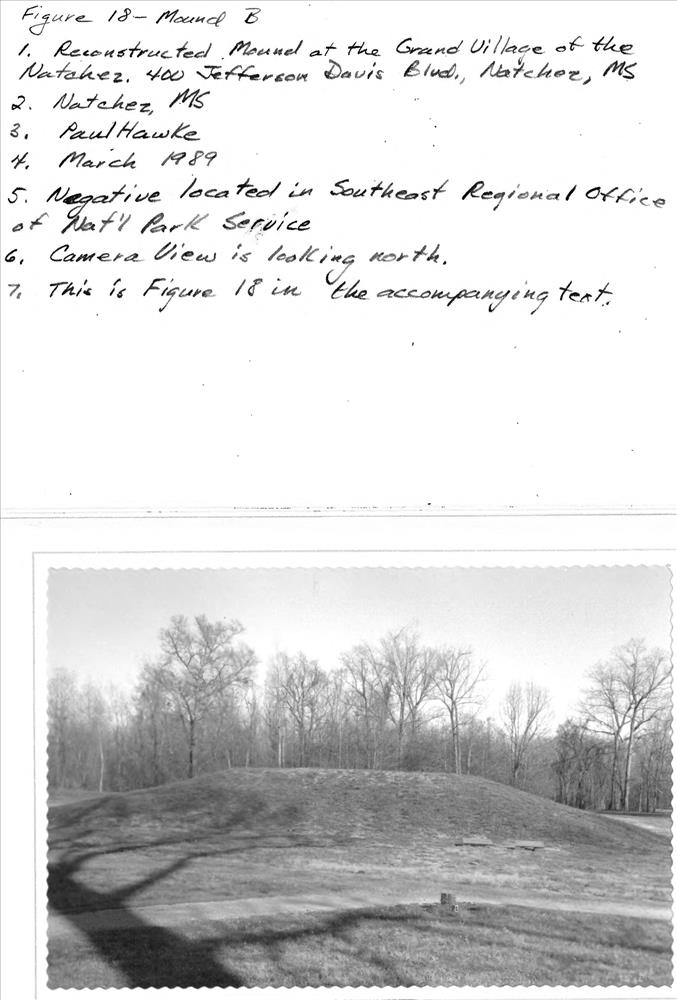 Figure 18 - Mound B
1. Reconstructed Mound at the Grand Village of the
Natchez. 400 Jefferson Davis Blvd., Natchez, MS
2. Natchez, MS
3. Paul Hawke
4. March 1989
5. Negative located in Southeast Regional Office
of Nat'l Park Service
6. Camera View is looking north.
7. This is Figure 18 in the accompanying text.